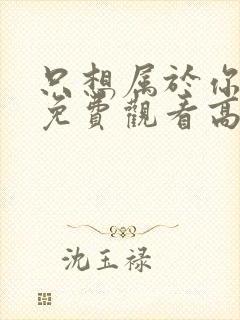 只想属於你
免費觀看高
沈玉禄